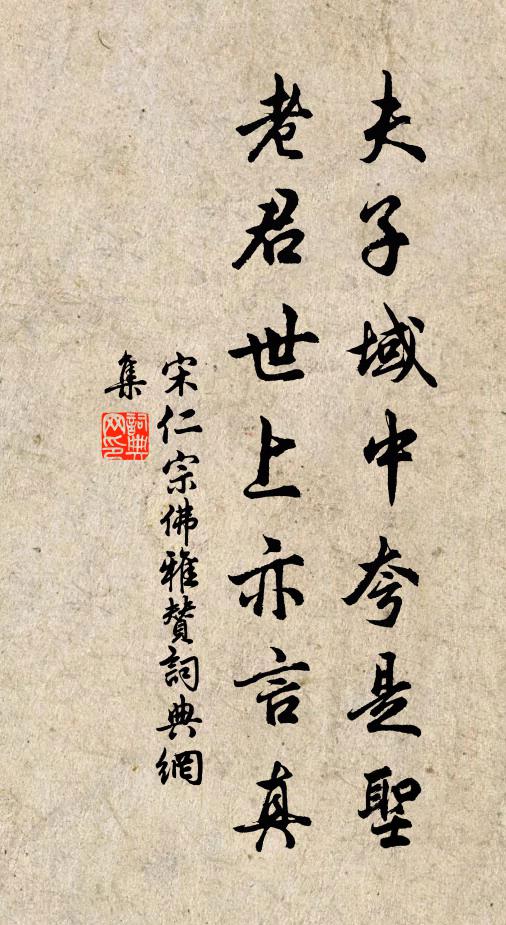 夫子域中夸是聖
老君世上亦言真
宋仁宗佛雅赞詞典網
集
詞典
网印